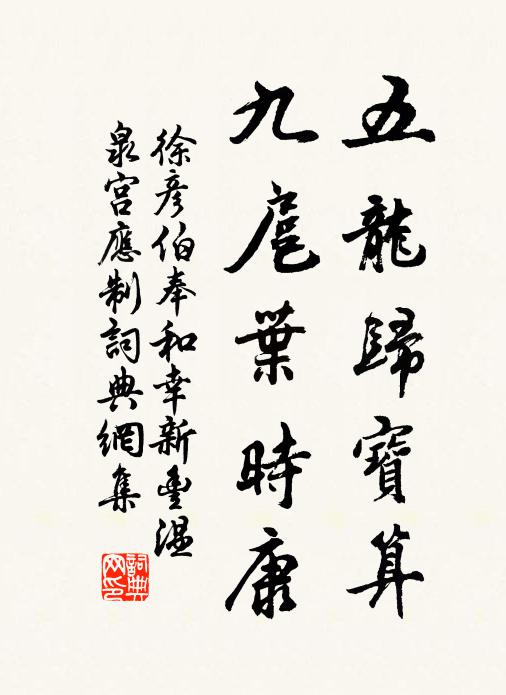 五龍歸寶算
九扈葉時康
徐彥伯奉和幸新豐溫
泉宮應制詞典網集
詞典
网印